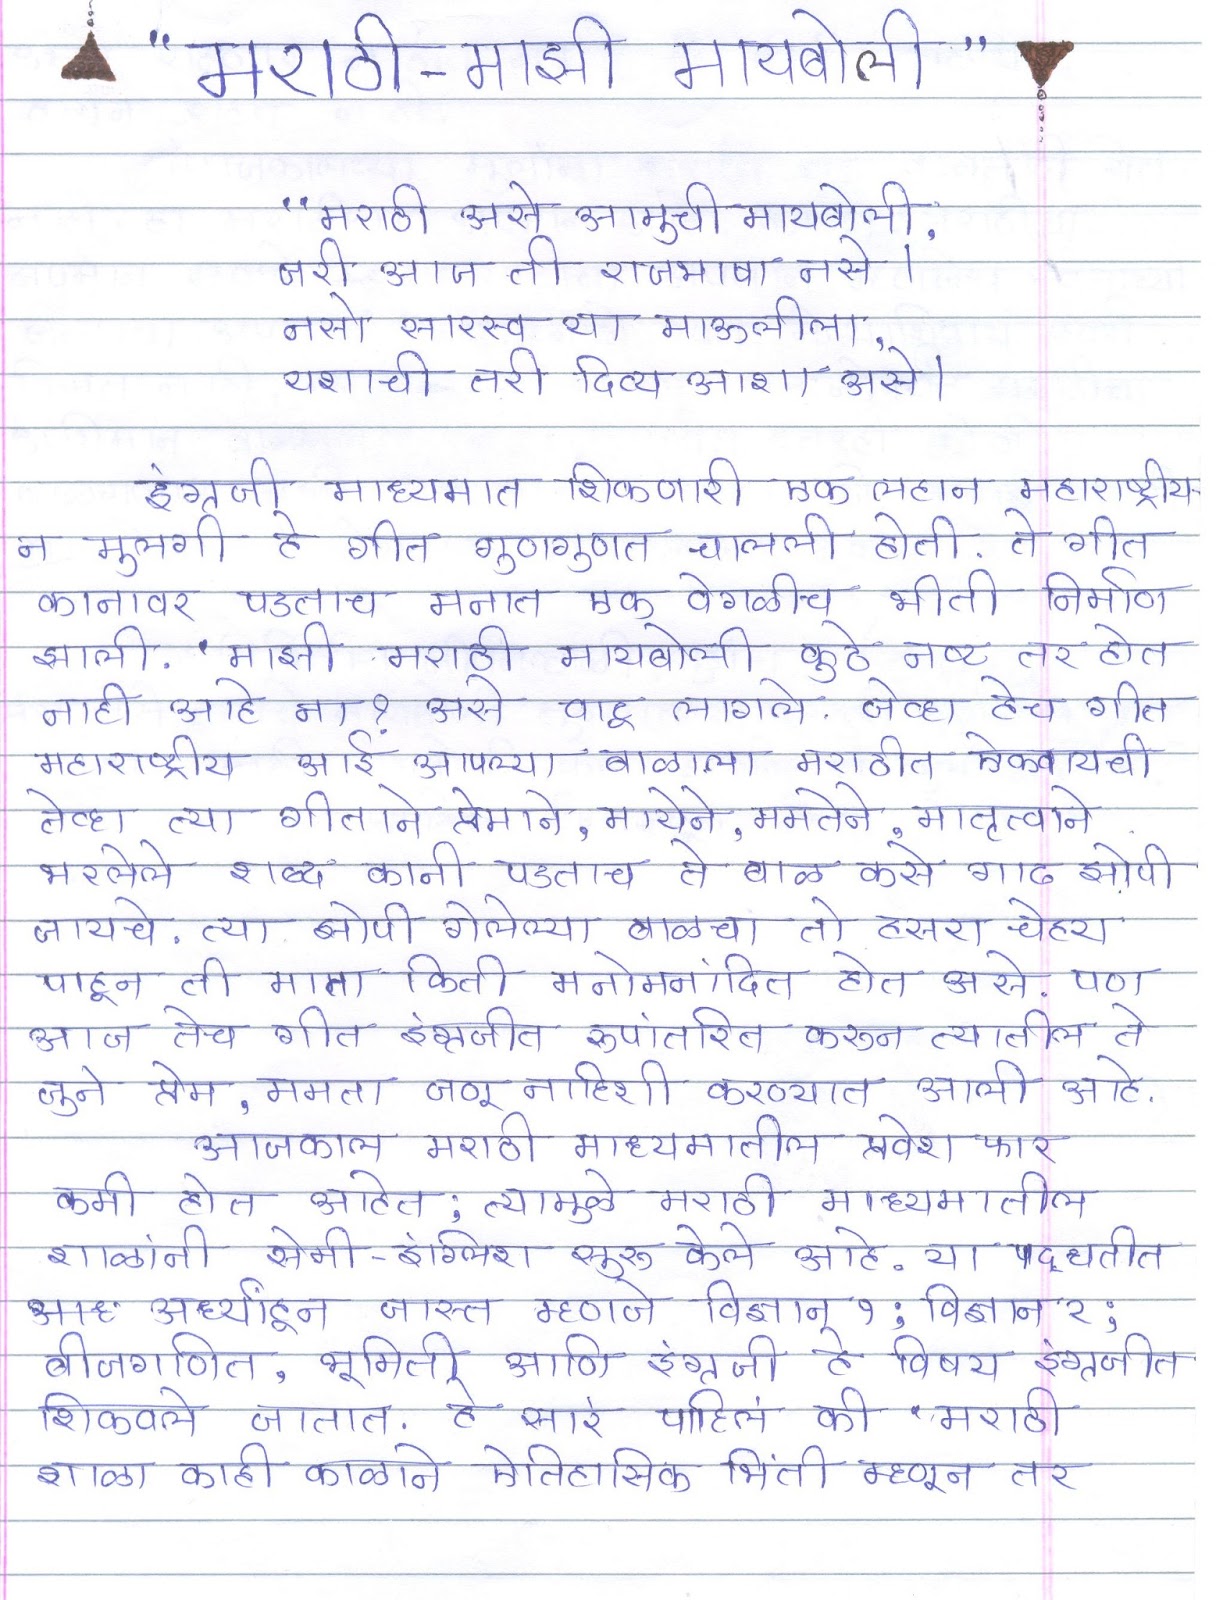 "मराठी-माझी मायबोली"
"मराठी असे आमुची मायबोली,
जरी आज ती राजभाषा नसे।
नसो सारस्व या माऊलीला,
यशाची तरी दिव्य आशा असे।
इंग्रजी माध्यमात शिकणारी एक लहान महाराष्ट्रीय-
न मुलगी हे गीत गुणगुणत चालली होती. ते गीत
कानावर पडताच मनात एक वेगळीच भीती निर्माण
झाली. 'माझी मराठी मायबोली कुठे नष्ट तर होत
नाही आहे ना? असे वाटू लागले. जेव्हा हेच गीत
महाराष्ट्रीय आई आपल्या बाळाला मराठीत ऐकवायची
तेव्हा त्या गीताने प्रेमाने, मायेने, ममतेने, मातृत्वाने
भरलेले शब्द कानी पडताच ते बाळ कसे गाढ झोपी
जायचे. त्या झोपी गेलेल्या बाळचा तो हसरा चेहरा
पाहून ती माता किती मनोमनांदित होत असे. पण
आज तेच गीत इंग्रजीत रूपांतरित करून त्यातील ते
जुने प्रेम, ममता जणू नाहिशी करण्यात आली आहे.
आजकाल मराठी माध्यमातील प्रवेश फार
कमी होत आहेत; त्यामुळे मराठी माध्यमातील
शाळांनी सेमी-इंग्लिश सुरू केले आहे. या पद्धतीत
अर्ध्याहून जास्त म्हणजे विज्ञान १; विज्ञान २;
बीजगणित, भूमिती आणि इंग्रजी हे विषय इंग्रजीत
शिकवले जातात. हे सारं पाहिलं की 'मराठी
शाळा काही काळाने ऐतिहासिक भिंती म्हणून तर